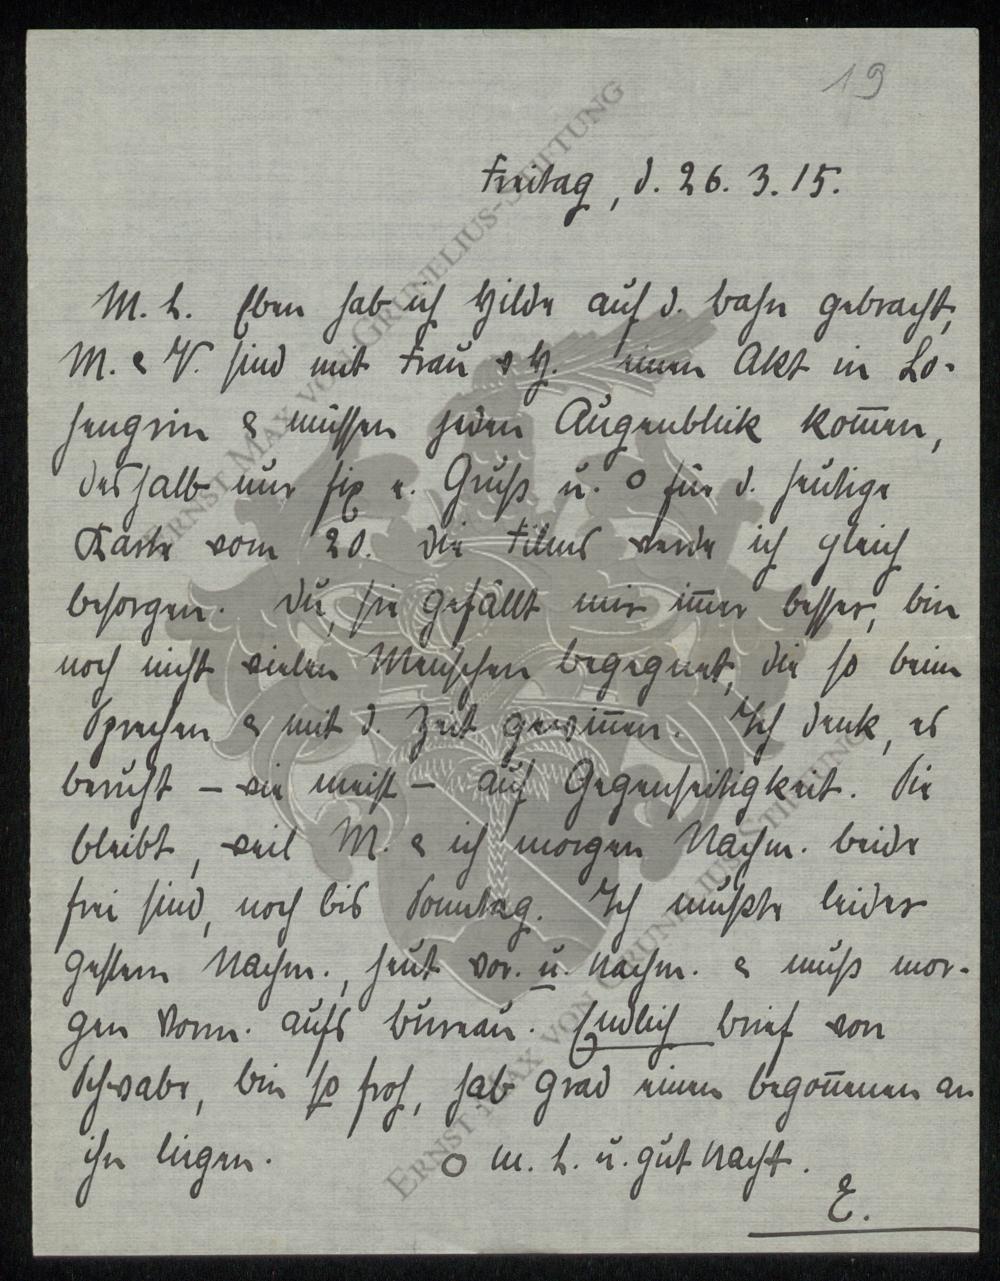 19
Freitag, d. 26. 3. 15.
M. L. Eben hab ich Hilde auf d. bahn gebracht,
M. & V. sind mit Frau v H. einen Akt in Lo-
hengrin & müssen jeden Augenblick kom̄en,
deshalb nur fix e. Gruß u. O für d. heutige
Karte vom 20. die Films werde ich gleich
besorgen. Du, sie gefällt mir im̄er besser, bin
noch nicht vielen Menschen begegnet, die so beim
Sprechen & mit d. Zeit gewin̄en. Ich denk, es
beruht – wie meist – auf Gegenseitigkeit. Sie
bleibt, weil M. & ich morgen Nachm. beide
frei sind, noch bis Sonntag. Ich mußte leider
gestern Nachm., heut vor. u. Nachm. & muß mor-
gen Vorm. aufs bureau. Endlich brief von
Schwabe, bin so froh, hab grad einen begon̄enen an
ihn liegen. O m. L. u. gut Nacht.
E.
ERNST MAX VON GRUNELIUS-STIFTUNG
ERNST MAX VON GRUNELIUS-STIFTUNG